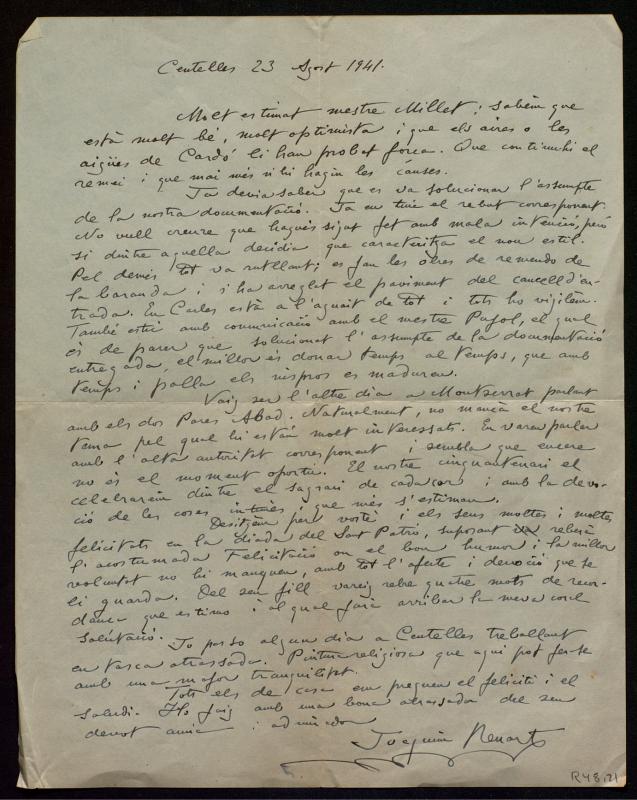 Centelles 23 Agost 1941.
Molt estimat mestre Millet: sabem que
està molt bé, molt optimista i que els aires o les
aigües de Cardó li han probat força. Que continuhi el
remei i que mai més n'hi hagin les causes.
Ja devia saber que es va solucionar l'assumpte
de la nostra documentació. Ja en tinc el rebut corresponent.
No vull creure que hagués sigut fet amb mala intenció, però
si dintre aquella decidia que caracteritza el nou estil.
Pel demés tot va rutllant; es fan les obres de remendo de
la baranda i s'ha arreglat el paviment del cancell d'en-
trada. En Carles està a l'aguait de tot i tots ho vigilem.
També estic amb comunicació amb el mestre Pujol, el qual
és de parer que solucionat l'assumpte de la documentació
entregada, el millor és donar temps al temps, que amb
temps i palla els nispros es maduren.
Vaig ser l'altre dia a Montserrat parlant
amb els dos Pares Abad. Naturalment, no mancà el nostre
tema pel qual hi están molt interessats. En varen parlar
amb l'alta autoritat corresponent i sembla que encere
no és el moment oportú. El nostre cinquantenari el
celebrarém dintre el sagrari de cada cor i amb la devo-
ció de les coses intimes i que més s'estiman.
Desitgèm per vostè i els seus moltes i moltes
felicitats en la diada del Sant Patró, suposant rebrà
l'acostumada Felicitació on el bon humor i la millor
voluntat no hi manquen, amb tot l'afecte i devoció que se
li guarda. Del seu fill vareig rebre quatre mots de recor-
dança que estimo i al qual farà arribar la meva coral
salutació.
Jo passo algun dia a Centelles treballant
en tasca atrassada. Pintura religiosa que aquí pot fer-se
amb una major tranquilitat.
Tots els de casa em preguen el feliciti i el
saludi. Ho faig amb una bona abrassada del seu
devot amic i admirador
Joaquim Renart
R48,21